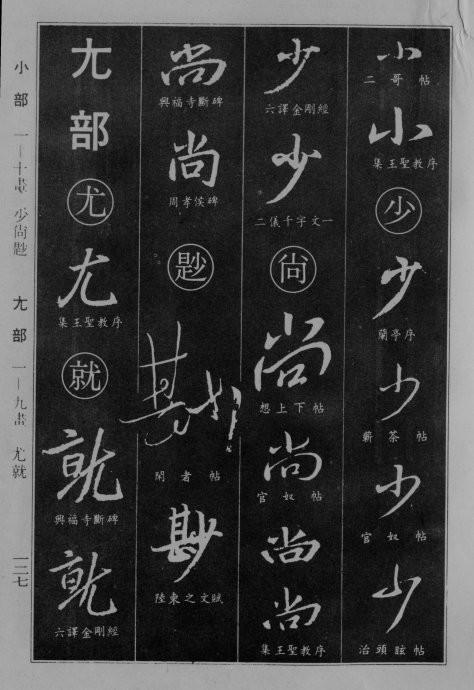 小
二哥帖
小
集王聖教序
少
少
蘭亭序
少
蘄茶帖
少
官奴帖
少
治頭眩帖
少
六譯金剛經
少
二儀千字文一
尙
尚
想上下帖
尚
官奴帖
尚
尚
集王聖教序
尚
興福寺斷碑
尚
周孝侯碑
尟
尟
閑者帖
尟
陸柬之文賦
尢部
尤
尤
集王聖教序
就
就
興福寺斷碑
就
六譯金剛經
小部 一—十畫 少尙尟 尢部 一—九畫 尤就 一二七